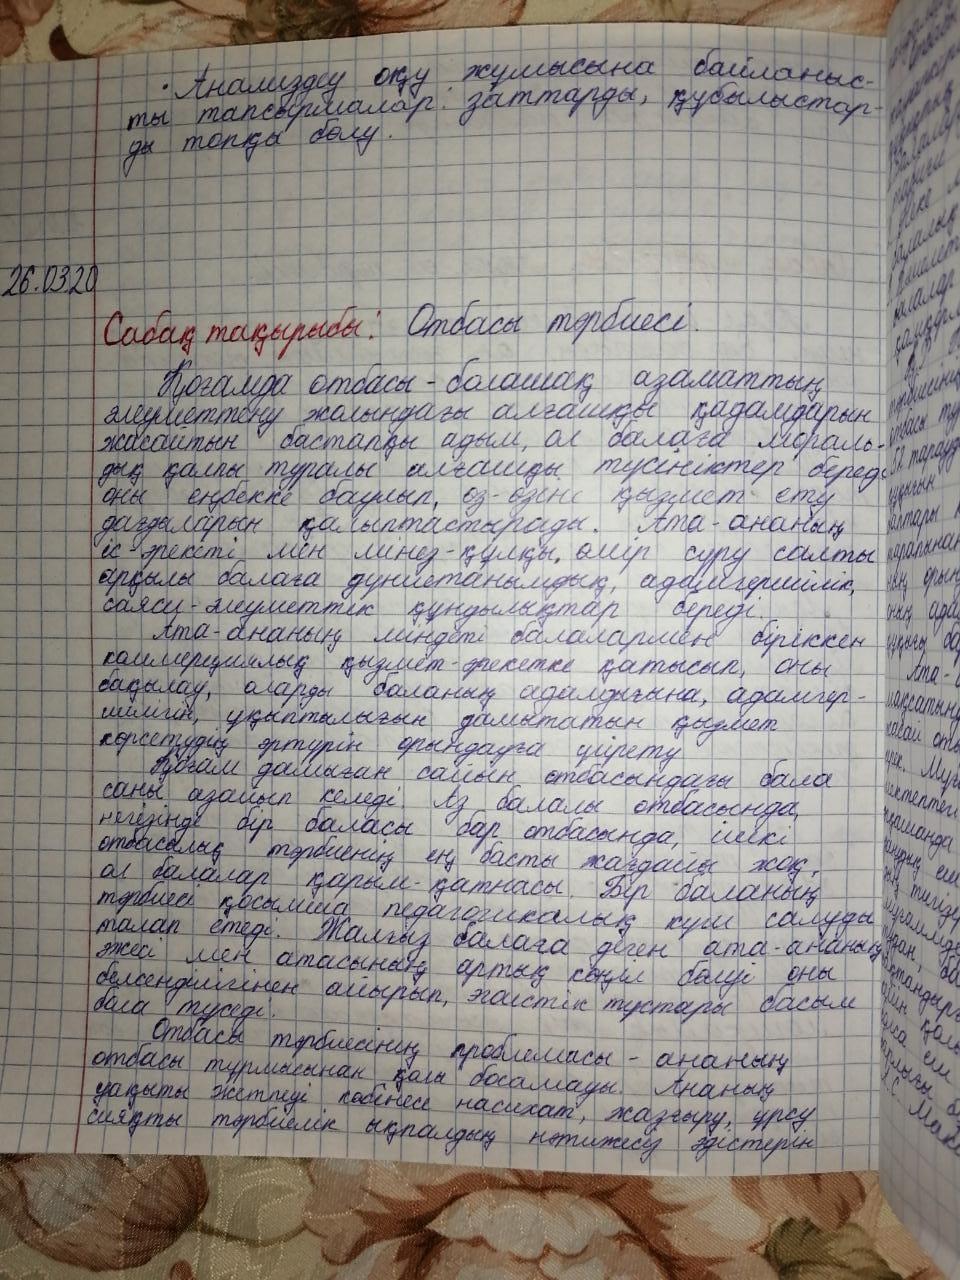 · Анализдеу оқу жұмысына байланыс-
ты тапсырмалар: заттарды, құбылыстар-
ды топқа бөлу.
26.03.20
Сабақ тақырыбы: Отбасы тәрбиесі.
Қоғамда отбасы - болашақ азаматтың
әлеуметтену жолындағы алғашқы қадамдарын
жасайтын бастапқы адым, ол балаға мораль-
дық қалпы туралы алғашқы түсініктер береді
оны еңбекке баулып, өз-өзіне қызмет ету
дағдыларын қалыптастырады. Ата-ананың
іс-әрекеті мен мінез-құлқы, өмір сүру салты
арқылы балаға дүниетанымдық, адамгершілік,
саяси-әлеуметтік құндылықтар береді.
Ата-ананың міндеті балалармен біріккен
коммерциялық қызмет-әрекетке қатысып, оны
бақылау, оларды баланың адалдығына, адамгер-
шілігін, ұқыптылығын дамытатын қызмет
көрсетудің әртүрін орындауға үйрету
Қоғам дамыған сайын отбасындағы бала
саны азайып келеді. Аз балалы отбасында,
негізінде бір баласы бар отбасында, ішкі
отбасылық тәрбиенің ең басты жағдайы жоқ,
ол балалар қарым-қатнасы. Бір баланың
тәрбиесі қосымша педагогикалық күш салуды
талап етеді. Жалғыз балаға деген ата-ананың
әжесі мен атасының артық көңіл бөлуі оны
белсенділігінен айырып, эгоистік тұстары басым
бола түседі.
Отбасы тәрбиесінің проблемасы - ананың
отбасы тұрмысынан қолы босамады. Ананың
уақыты жетпеуі көбінесе насихат, жазғыру, ұрсу
сияқты тәрбиелік ықпалдың нәтижесіз әдістерін